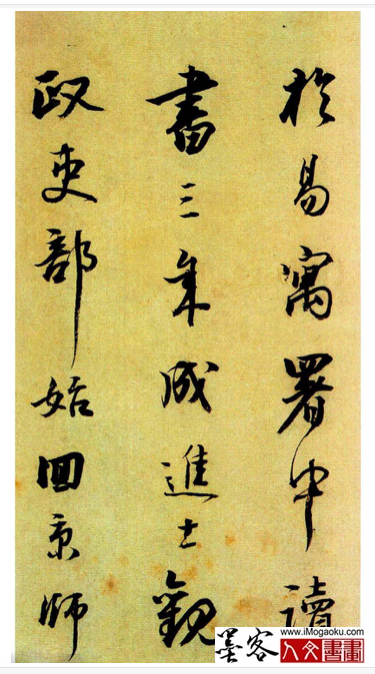 於易寓署中讀
書三年成進士觀
政吏部始回京師
墨客
www.iMogaoku.com
人文書畫